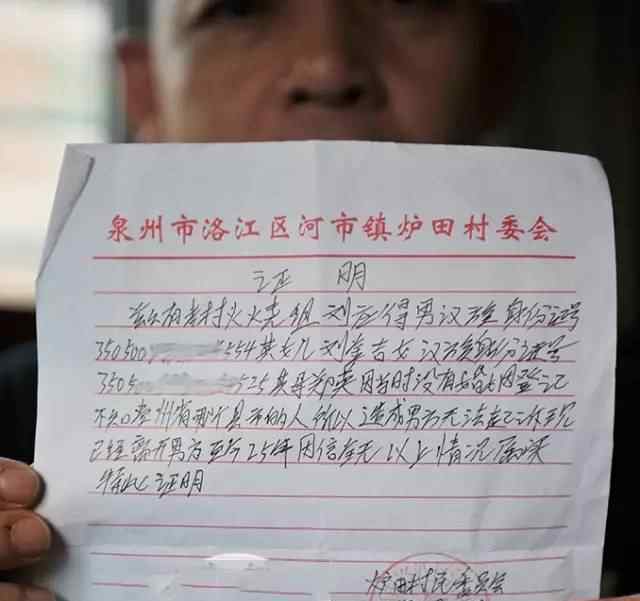 泉州市洛江区河市镇炉田村委会
证 明
兹有本村火烧组 刘应得男汉族身份证号
350500 554其女儿刘 吉女汉族身份证号
3505 525其母郑英因当时没有婚姻登记
不知 州省哪个县 的人所以造成男方无法
已经离开男方至今25年 信全无以上情况属实
特此证明
炉田村民委员会